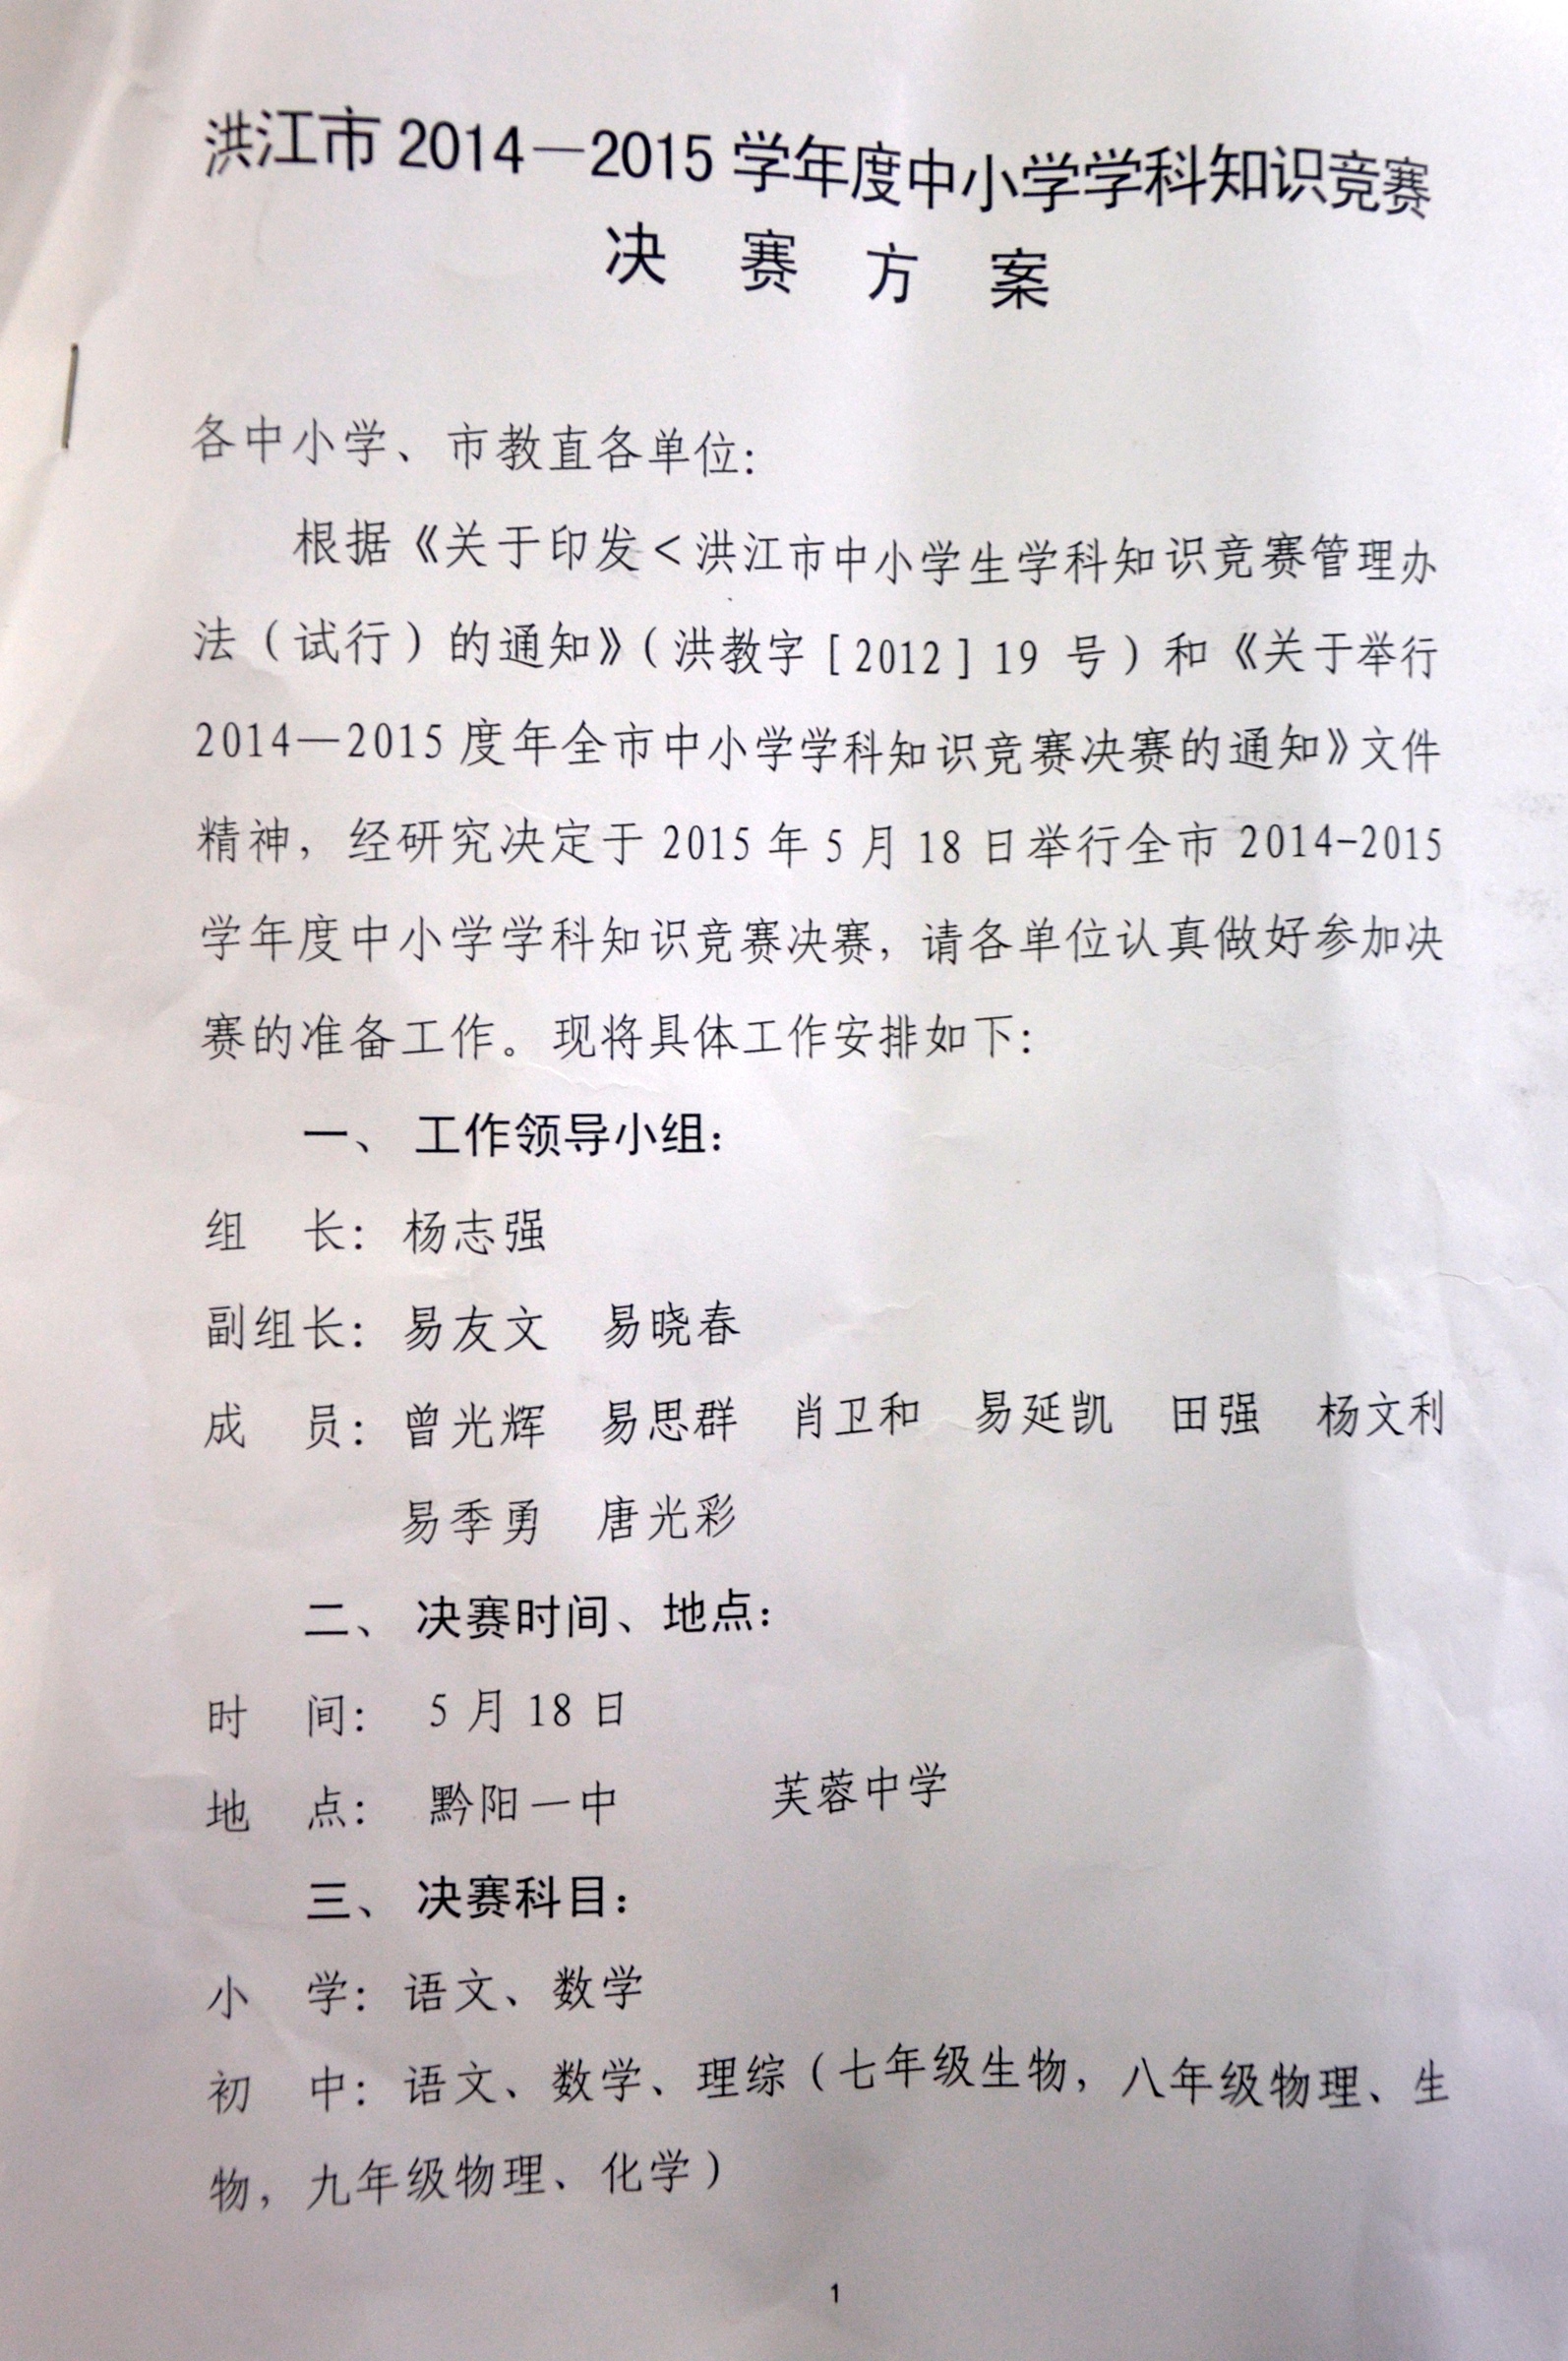 洪江市 2014－2015 学年度中小学学科知识竞赛
决 赛 方 案
各中小学、市教直各单位：
根据《关于印发＜洪江市中小学生学科知识竞赛管理办
法（试行）的通知》（洪教字［2012］19 号）和《关于举行
2014—2015 度年全市中小学学科知识竞赛决赛的通知》文件
精神，经研究决定于 2015 年 5 月 18 日举行全市 2014-2015
学年度中小学学科知识竞赛决赛，请各单位认真做好参加决
赛的准备工作。现将具体工作安排如下：
一、 工作领导小组：
组 长：杨志强
副组长：易友文 易晓春
成 员：曾光辉 易思群 肖卫和 易延凯 田强 杨文利
易季勇 唐光彩
二、 决赛时间、地点：
时 间： 5 月 18 日
地 点： 黔阳一中 芙蓉中学
三、 决赛科目：
小 学：语文、数学
初 中：语文、数学、理综（七年级生物，八年级物理、生
物，九年级物理、化学）
1